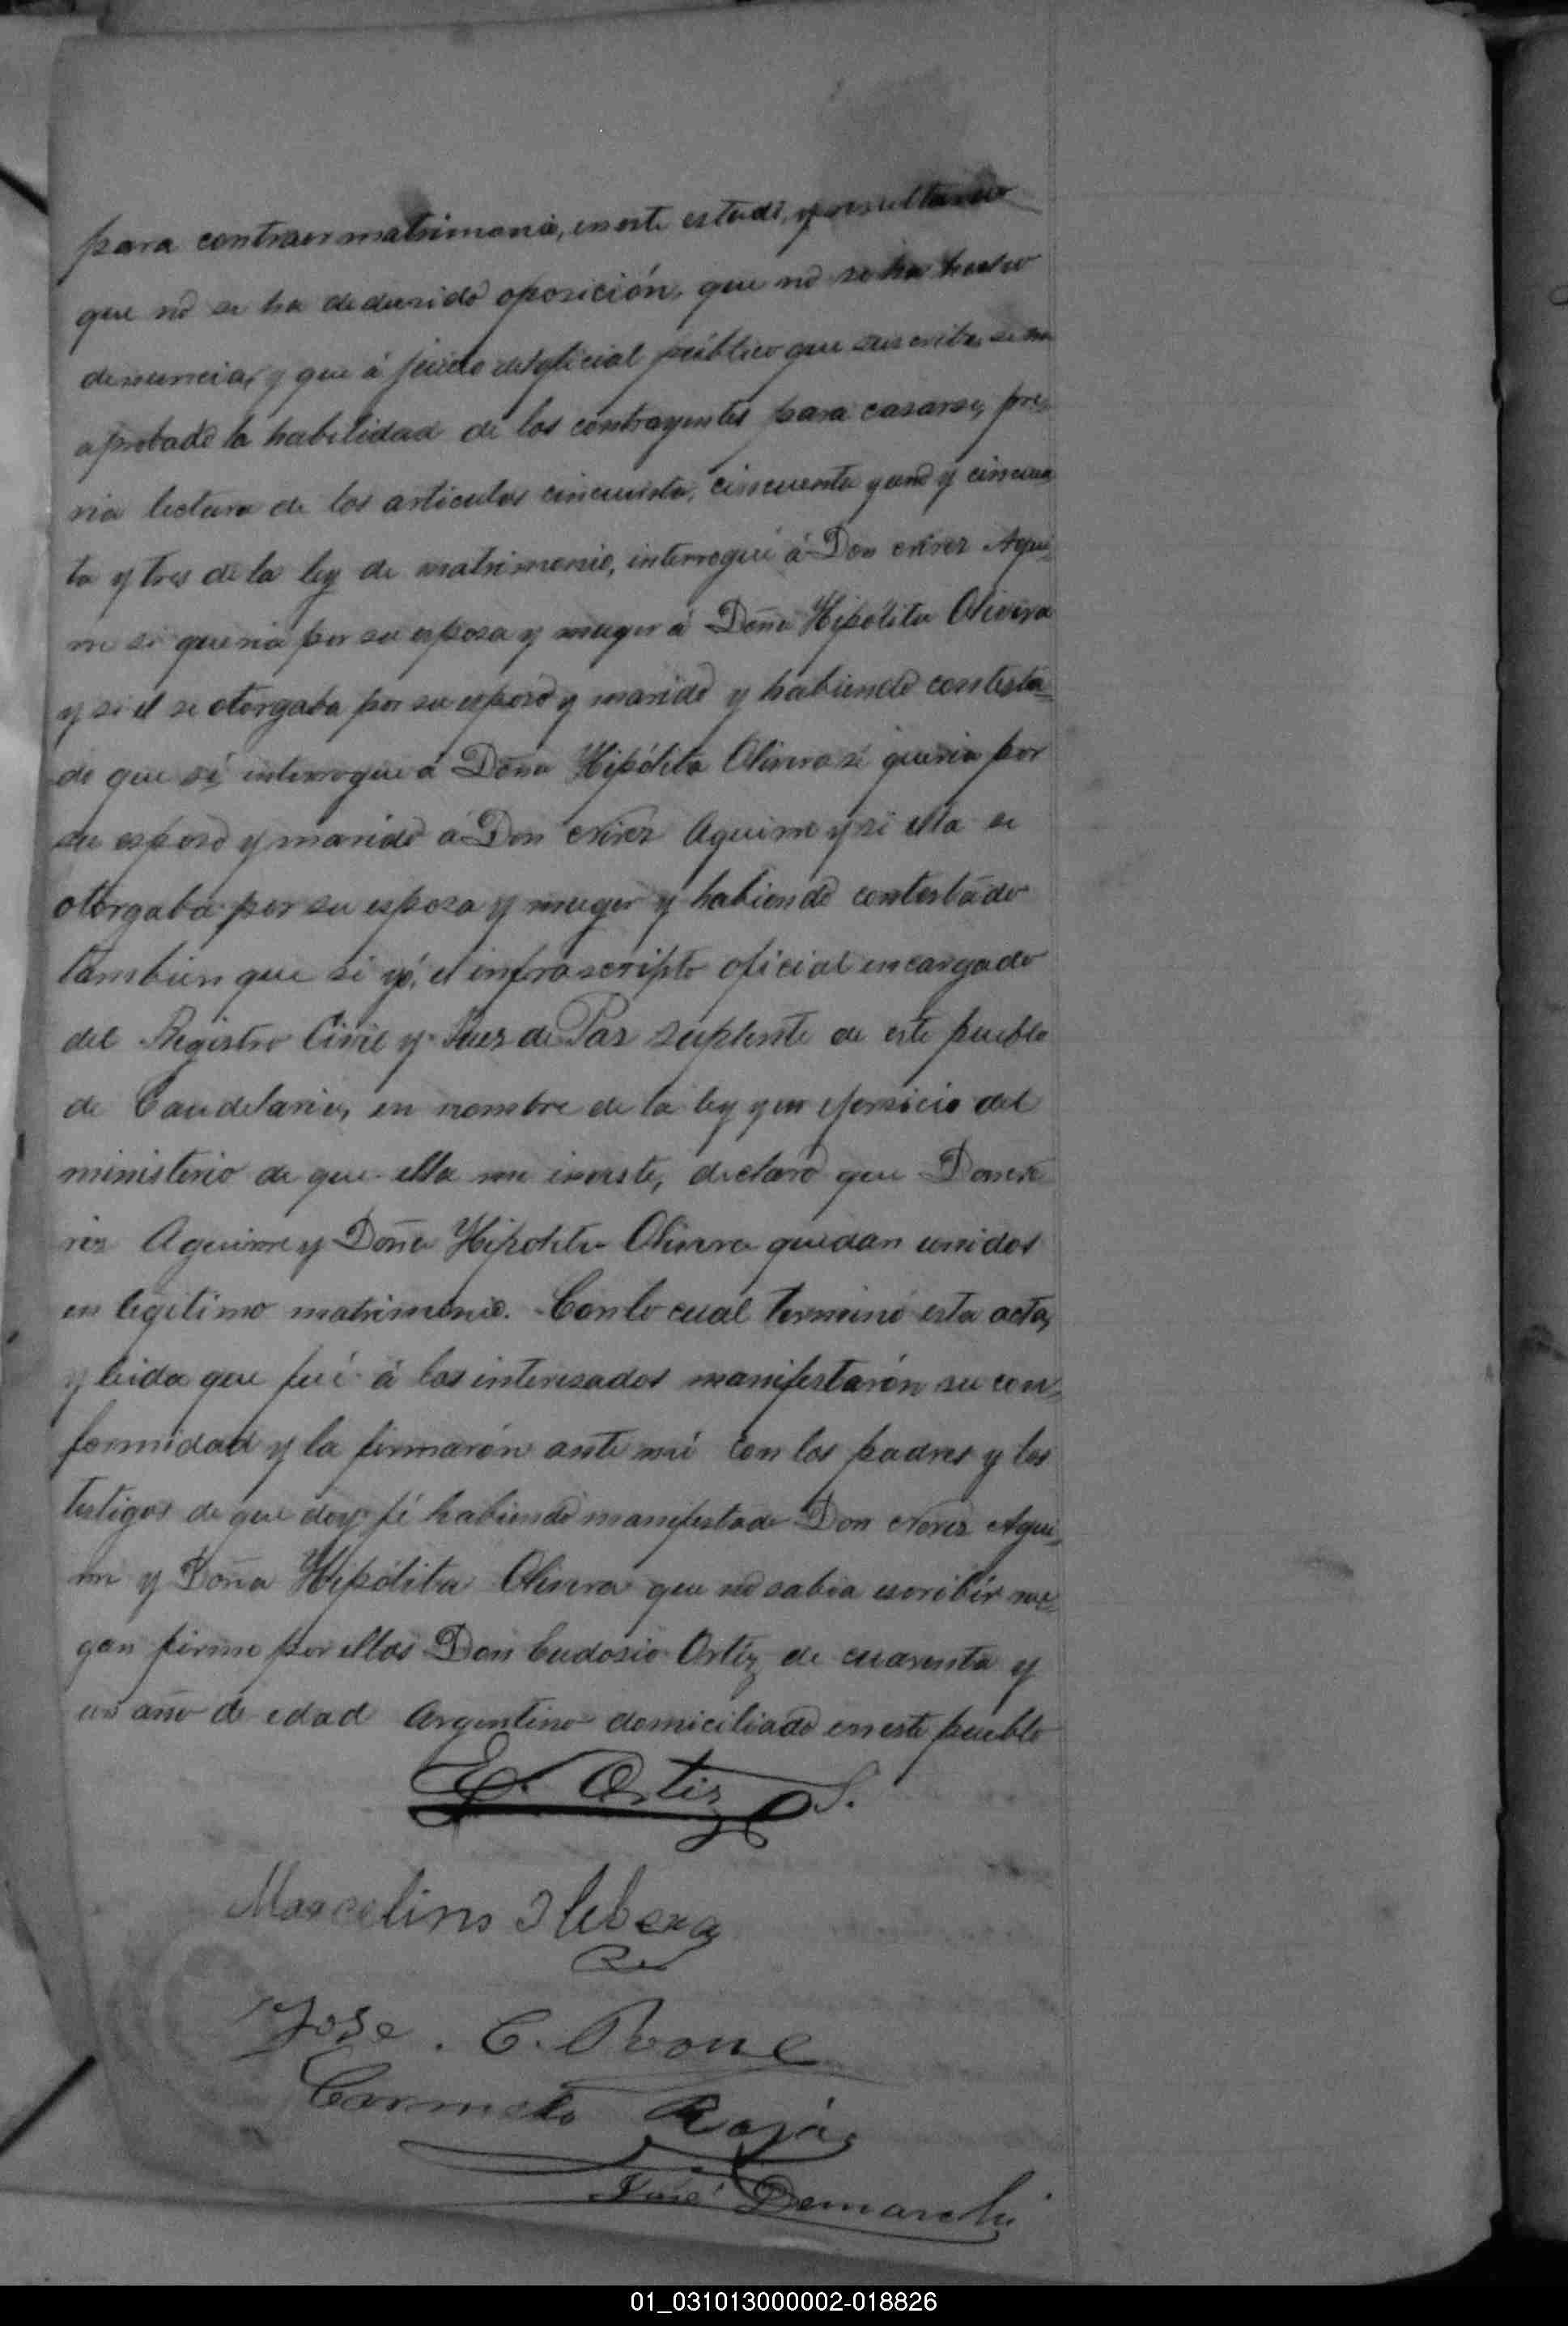 para contraer matrimonio, en este estado, y resultando
que no se ha dedusido oposición, que no se ha hecho
denuncia, y que á juicio del oficial público que suscribe, se ha
aprobado la habilidad de los contrayentes para casarse, pre-
via lectura de los articulos cincuenta, cincuenta y uno y cincuen
ta y tres de la ley de matrimonio, interrogué á Don Nerez Agui-
rre si queria por su esposa y muger á Doña Hipólita Olivera
y si el se otorgaba por su esposo y marido y habiendo contesta=
do que sí, interrogue á Doña Hipólita Olivera si queria por
su esposo y marido á Don Nerez Aguirre y si ella se
otorgaba por su esposa y muger y habiendo contestado
tambien que si yó, el infrascripto oficial encargado
del Registro Civil y Juez de Paz suplente de este pueblo
de Candelaria, en nombre de la ley y en ejersicio del
ministerio de que ella me inviste, declaro que Don Ne
rez Aguirre y Doña Hipolita Olivera quedan unidos
en legitimo matrimonio. Con lo cual terminó esta acta,
y leida que fué á los interesados manifestarón su con=
formidad y la firmarón ante mí con los padres y los
testigos de que doy fé habiendo manifestado Don Nerez Agui=
rre y Doña Hipólita Olivera que no sabia escribir rue=
gan firme por ellos Don Eudosio Ortiz de cuarenta y
un año de edad Argentino domiciliado en este pueblo
E. Ortiz S.
Marcelino
Jose. C.
Carmelo Rojas
José Demarchi
01_031013000002-018826